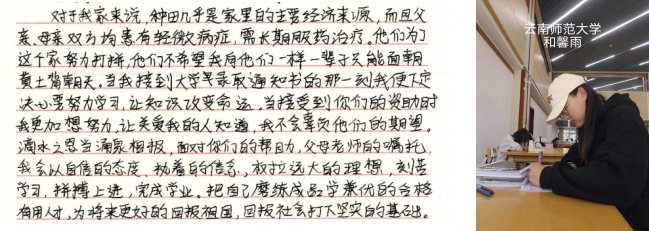 对于我家来说，种田几乎是家里的主要经济来源，而且父
亲、母亲双方均患有轻微病症，需长期服药治疗。他们为了
这个家努力打拼，他们不希望我同他们一样一辈子只能面朝
黄土背朝天。当我接到大学录取通知书的那一刻我便下定
决心要努力学习，让知识改变命运。当接受到你们的资助时
我更加想努力，让关爱我的人知道，我不会辜负他们的期望。
滴水之恩当涌泉相报，面对你们的帮助，父母老师的嘱托，
我会以自信的态度、执着的信念，树立远大的理想，刻苦
学习，拼搏上进，完成学业。把自己磨练成品学兼优的合格
有用人才，为将来更好的回报祖国，回报社会打下坚实的基础。
云南师范大学
和馨雨